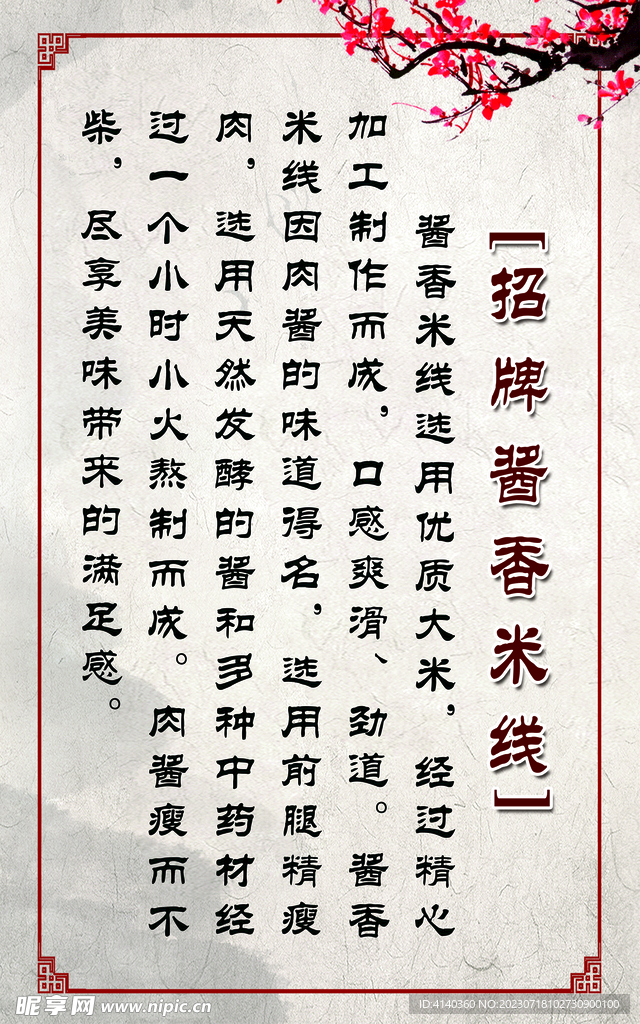 [招牌酱香米线]
酱香米线选用优质大米，经过精心
加工制作而成，口感爽滑、劲道。酱香
米线因肉酱的味道得名，选用前腿精瘦
肉，选用天然发酵的酱和多种中药材经
过一个小时小火熬制而成。肉酱瘦而不
柴，尽享美味带来的满足感。
昵享网 www.nipic.cn
ID:4140360 NO:20230718102730900100